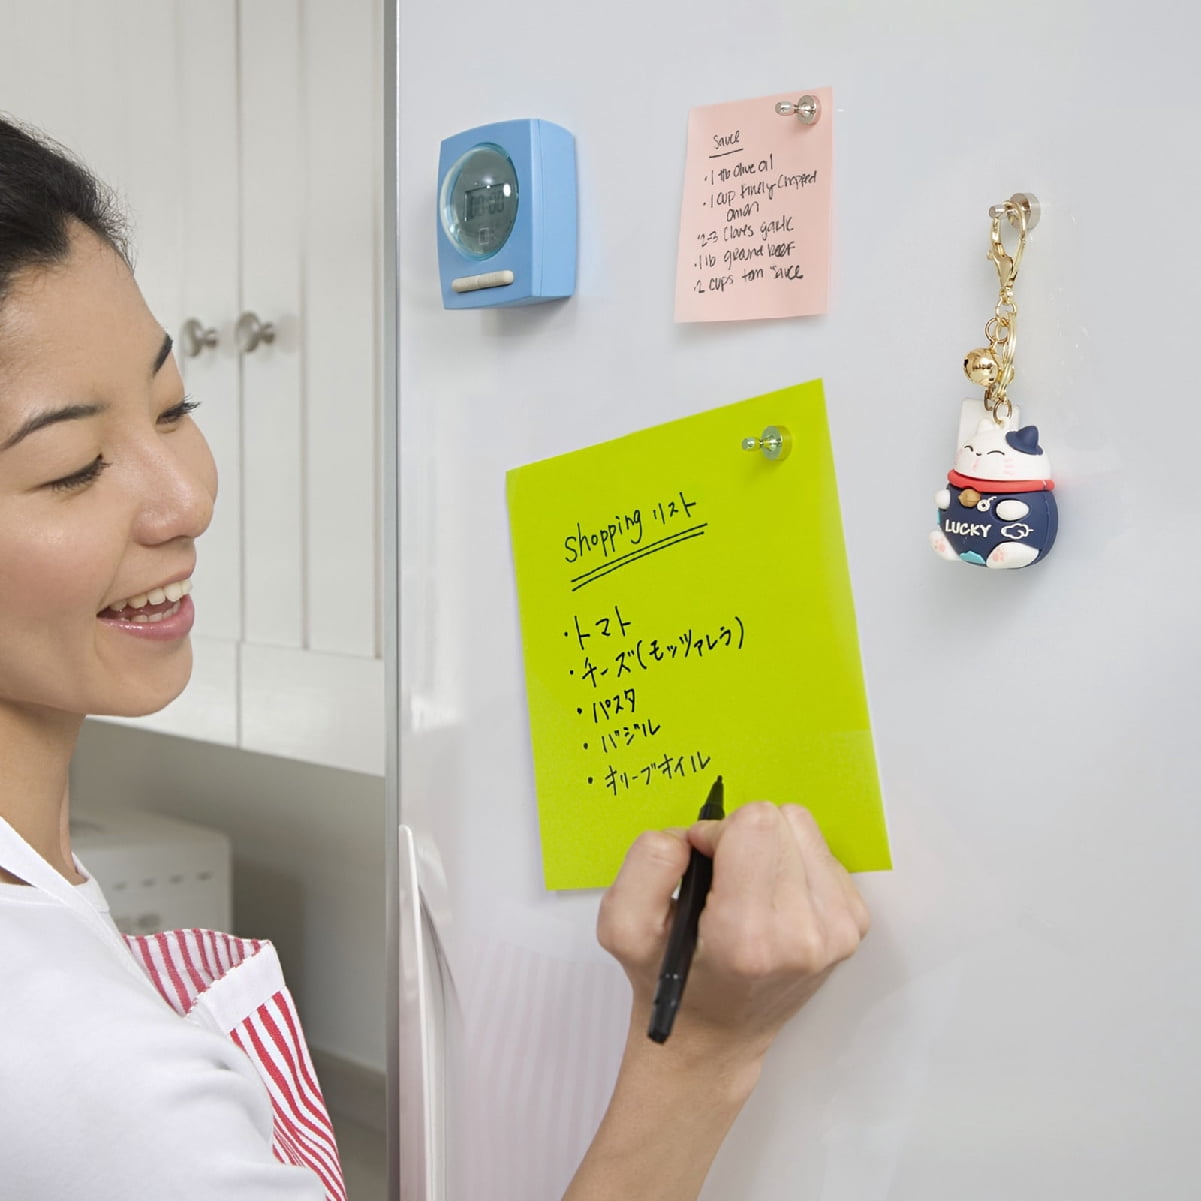 Sauce
·1 tb olive oil
·1 cup finely chopped
onion
·2-3 cloves garlic
·1 lb ground beef
·2 cups tom sauce
Shopping リスト
·トマト
·チーズ(モッツァレラ)
·パスタ
·バジル
·オリーブオイル
LUCKY